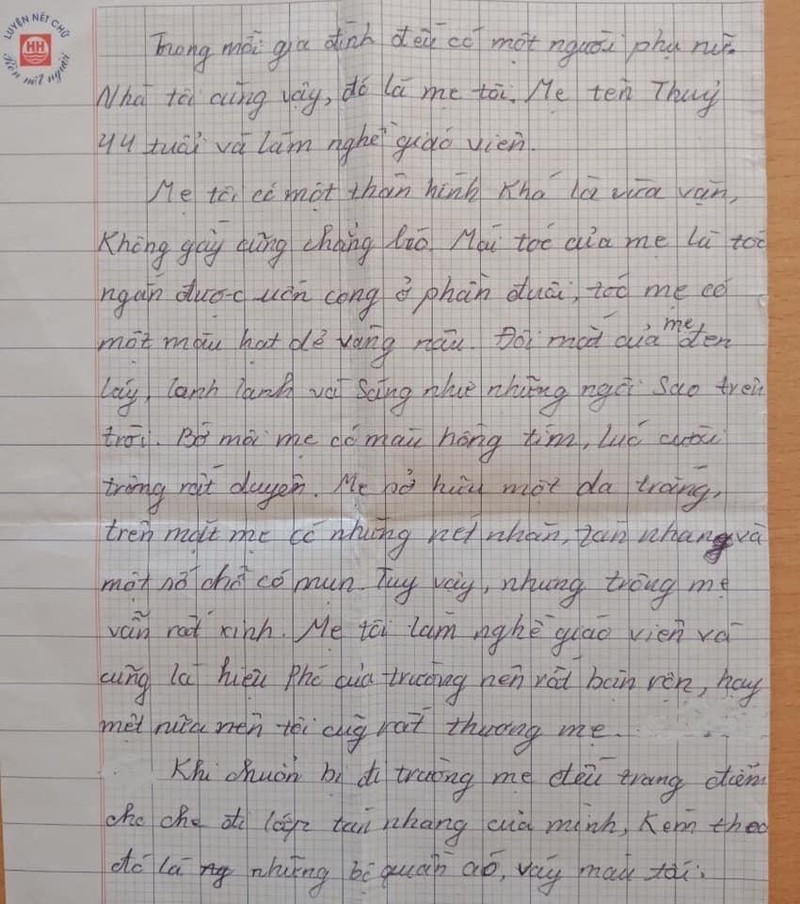 LUYỆN NÉT CHỮ
HH
Rèn nết người
Trong mỗi gia đình đều có một người phụ nữ.
Nhà tôi cũng vậy, đó là mẹ tôi. Mẹ tên Thuỷ
44 tuổi và làm nghề giáo viên.
Mẹ tôi có một thân hình khá là vừa vặn,
Không gầy cũng chẳng béo. Mái tóc của mẹ là tóc
ngắn được uốn cong ở phần đuôi, tóc mẹ có
một màu hạt dẻ vàng nâu. Đôi mắt của mẹ đen
láy, lanh lanh và sáng như những ngôi sao trên
trời. Bờ môi mẹ có màu hồng tím, lúc cười
trông rất duyên. Mẹ sở hữu một da trắng,
trên mặt mẹ có những nét nhăn, tàn nhang và
một số chỗ có mụn. Tuy vậy, nhưng trông mẹ
vẫn rất xinh. Mẹ tôi làm nghề giáo viên và
cũng là hiệu Phó của trường nên rất bận rộn, hay
mệt nữa nên tôi cũg rất thương mẹ.
Khi chuẩn bị đi trường mẹ đều trang điểm
cho che đi lớp tàn nhang của mình, Kèm theo
đó là ng những bộ quần áo, váy màu tối.